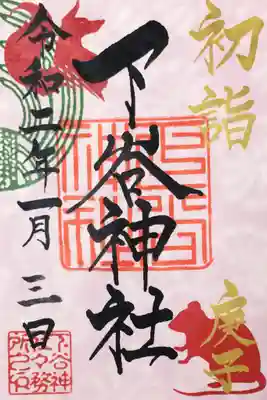 初詣
庚子
下谷神社
令和二年一月三日
下谷神
社々務
所之印